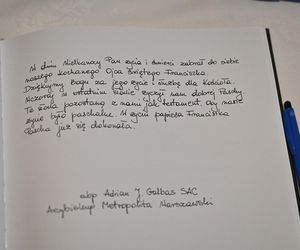 W dniu Wielkanocy Pan życia i śmierci zabrał do siebie
naszego kochanego Ojca Świętego Franciszka.
Dziękujemy Bogu za jego życie i służbę dla Kościoła.
Wczoraj w ostatnim słowie życzył nam dobrej Paschy.
Te słowa pozostaną z nami jak testament. Oby nasze
życie było paschalne. W życiu papieża Franciszka
Pascha już się dokonała.
abp Adrian J. Galbas SAC
Arcybiskup Metropolita Warszawski